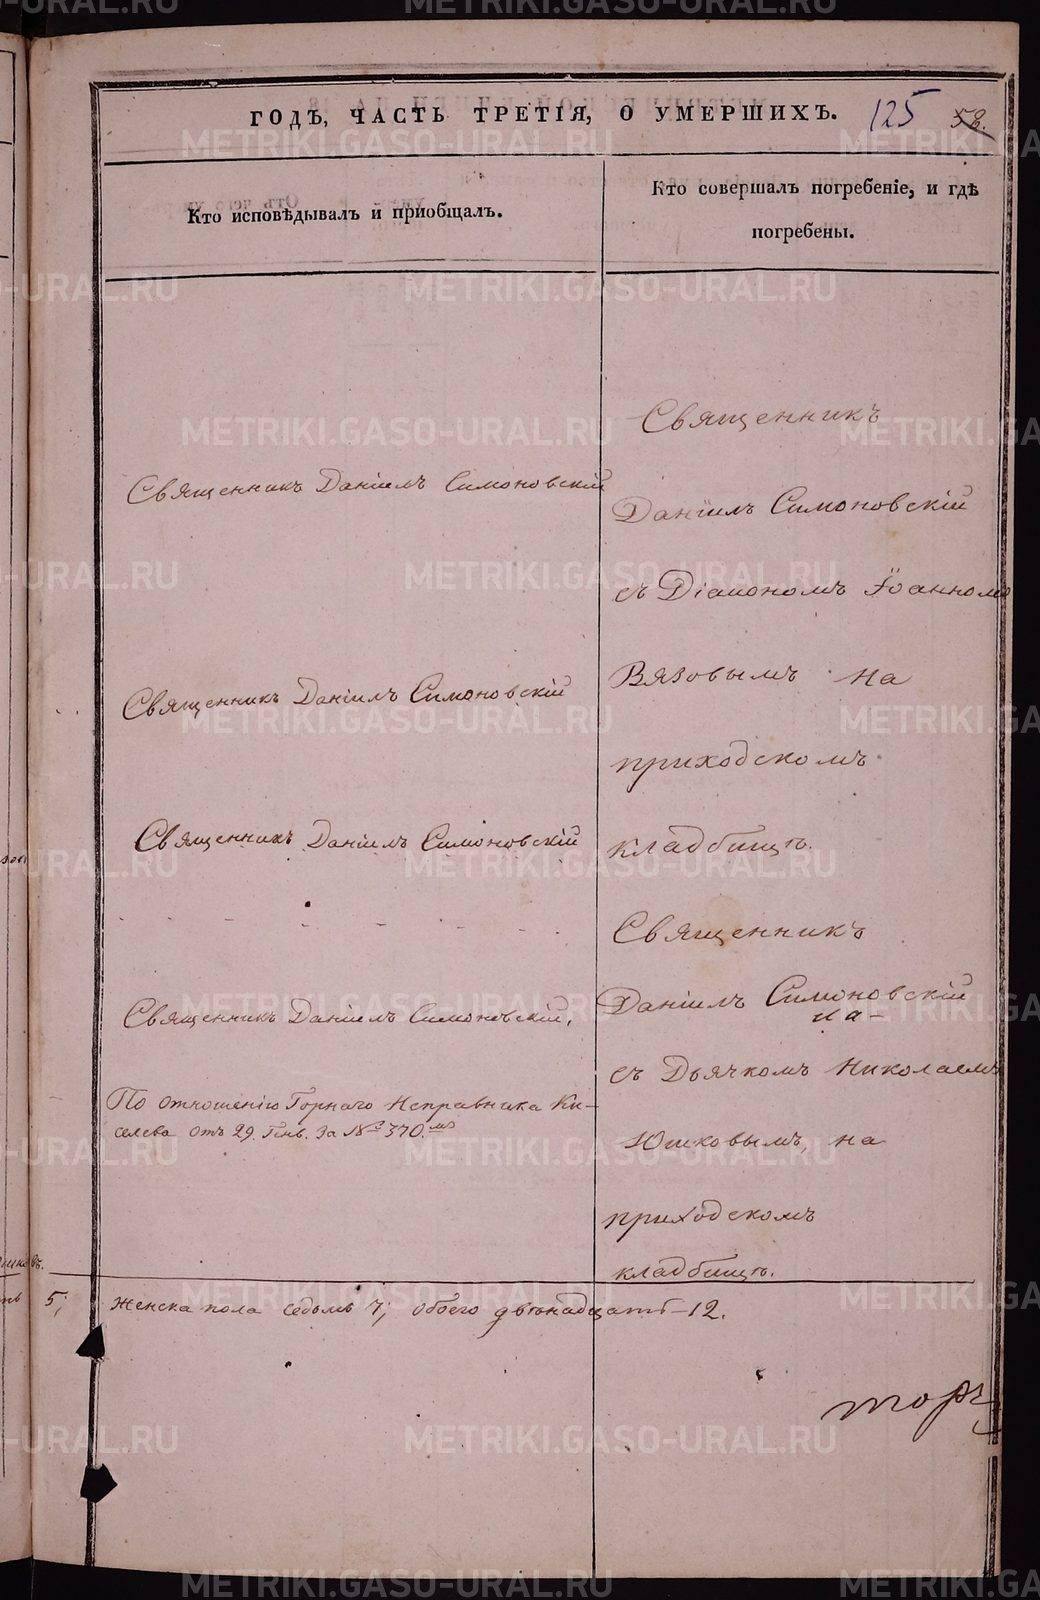 ГОДЪ, ЧАСТЬ ТРЕТІЯ, О УМЕРШИХЪ. 125 58.
Кто исповѣдывалъ и пріобщалъ.
Кто совершалъ погребеніе, и гдѣ
погребены.
Священникъ Даніилъ Симоновскій
Священникъ Даніилъ Симоновскій
Священникъ Даніилъ Симоновскій
- - - - -
Священникъ Даніилъ Симоновскій,
По отношенію Горнаго Исправника Ки-
селева отъ 29 Генв. за № 370.мъ
Священникъ
Даніилъ Симоновскій
съ Діакономъ Іоанномъ
Вязовымъ на
приходскомъ
кладбищѣ.
Священникъ
Даніилъ Симоновскій
на -
съ Дьячкомъ Николаемъ
Юшковымъ, на
приходскомъ
кладбищѣ.
5; Женска пола седьмь 7; обоего двѣнадцать - 12.
METRIKI.GASO-URAL.RU